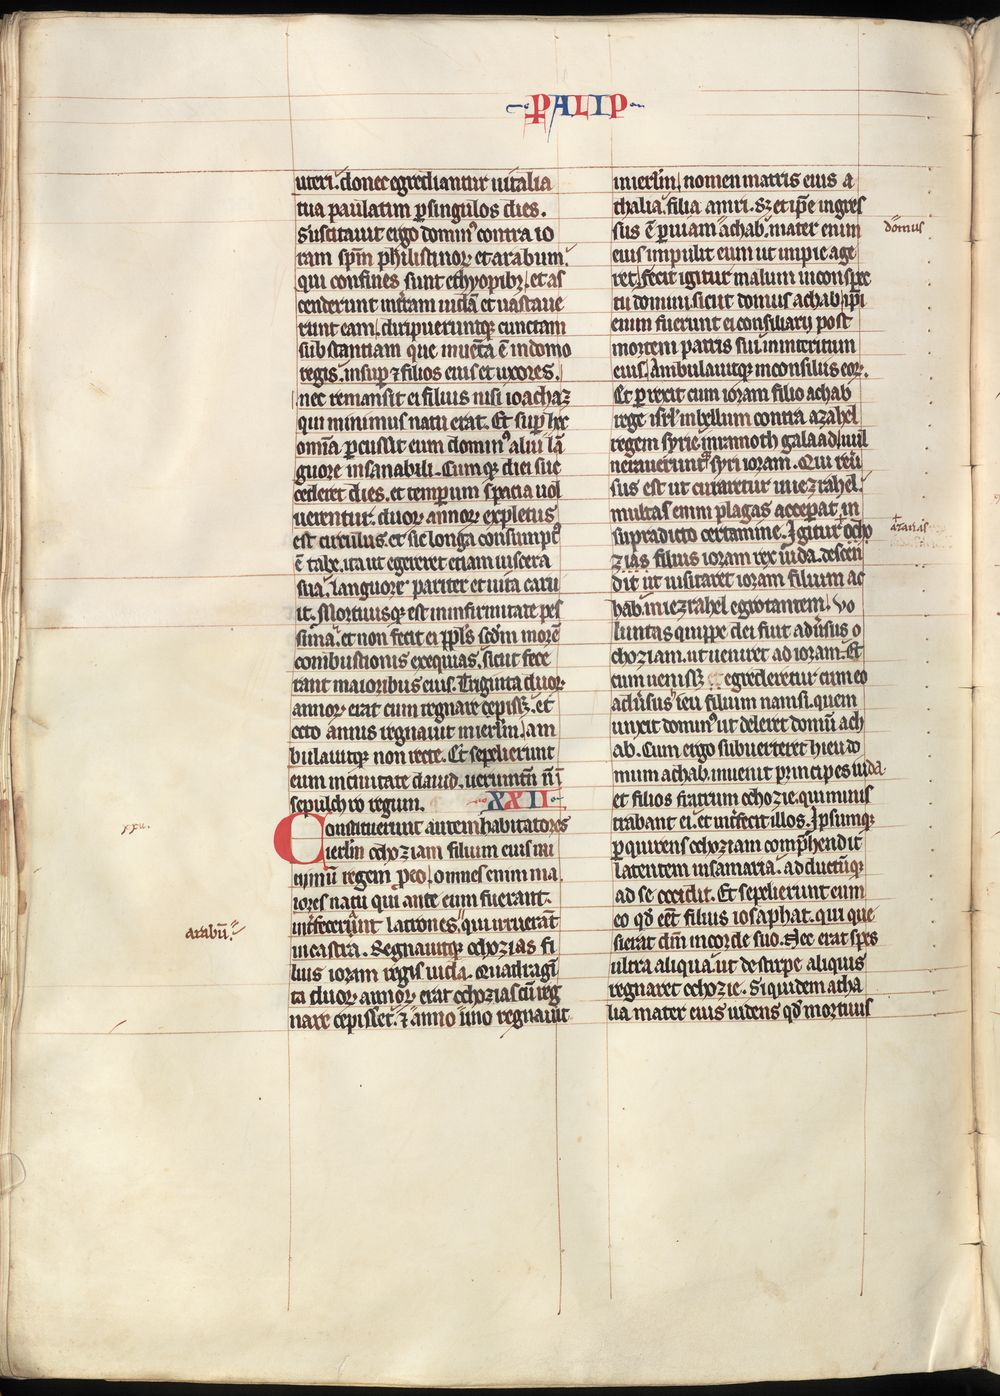 PALIP
uteri. donec egrediantur uitalia
tua paulatim ꝑ singulos dies.
Suscitauit ergo dominꝰ contra io
ram sp̄m philistinoꝝ et arabum.
qui confines sunt ethyopibꝫ, et as
cenderunt int̄ram iudā et uastaue
runt eam, diripueruntqꝫ cunctam
substantiam que inuēta ē indomo
regis. insuꝑ ⁊ filios eius et uxores.
nec remansit ei filius nisi ioachaz
qui minimus natu erat. Et suꝑ hec
omīa ꝑcussit eum dominꝰ alui lā
guore insanabili. Cumqꝫ diei suc
cederet dies. et temporum spacia uol
uerentur. duoꝝ annoꝝ expletus
est circulus. et sic longa consumptꝰ
ē tabe, ita ut egereret etiam uiscera
sua. languore pariter et uita caru
it. Mortuusqꝫ est ininfirmitate pes
sima. et non fecit ei ppl̄s scd̄m morē
combustionis exequias. sicut fece
rant maioribus eius. Triginta duoꝝ
annoꝝ erat cum regnare cepissꝫ. et
octo annis regnauit inierl̄m, am
bulauitqꝫ non recte. Et sepelierunt
eum inciuitate dauid. ueruntn̄ n̄ ī
sepulchro regum. XXII
Constituerunt autem habitatores
ierl̄m ochoziam filium eius mi
nimū regem pro eo, omnes enim ma
iores natu qui ante eum fuerant.
int̄fecerunt latrones, qui irruerāt
incastra. Regnauitqꝫ ochozias fi
lius ioram regis iuda. Quadragī
ta duoꝝ annoꝝ erat ochozias cū reg
nare cepisset. ⁊ anno uno regnauit
xxii.
arabū.
inierl̄m, nomen matris eius a
thalia. filia amri. Sꝫ et ip̄e ingres
sus ē ꝑ uiam achab. mater enim
eius impulit eum ut impie age
ret, fecit igitur malum inconspec
tu domini sicut domus achab, ip̄i
enim fuerunt ei consiliarij post
mortem patris sui. ininteritum
eius, Ambulauitqꝫ inconsiliis eoꝝ.
Et perrexit cum ioram filio achab
rege isrl̄ inbellum contra azahel
regem syrie inramoth galaad, uul
nerauerunt syri ioram. Qui reū
sus est ut curaretur iniezrahel.
multas enim plagas acceꝑat in
supradicto certamine. Igitur ocho
zias filius ioram rex iuda. descen
dit ut uisitaret ioram filium ac
hab. iniezrahel egrotantem. Vo
luntas quippe dei fuit adūsus o
choziam. ut ueniret ad ioram. Et
cum uenissꝫ egrederetur cum eo
adūsus ieu filium namsi. quem
unxit dominꝰ ut deleret domū ach
ab. Cum ergo subuerteret hieu do
mum achab. inuenit principes iuda
et filios fratrum ochozie. qui minis
trabant ei. et int̄fecit illos. Ipsumqꝫ
ꝑquirens ochoziam comp̄hendit
latentem insamaria. adductūqꝫ
ad se occidit. Et sepelierunt eum
eo qd̄ eēt filius iosaphat. qui que
sierat dm̄ incorde suo. Nec erat spes
ultra aliqua. ut de stirpe aliquis
regnaret ochozie. Siquidem atha
lia mater eius uidens qd̄ mortuus
domus
azarias